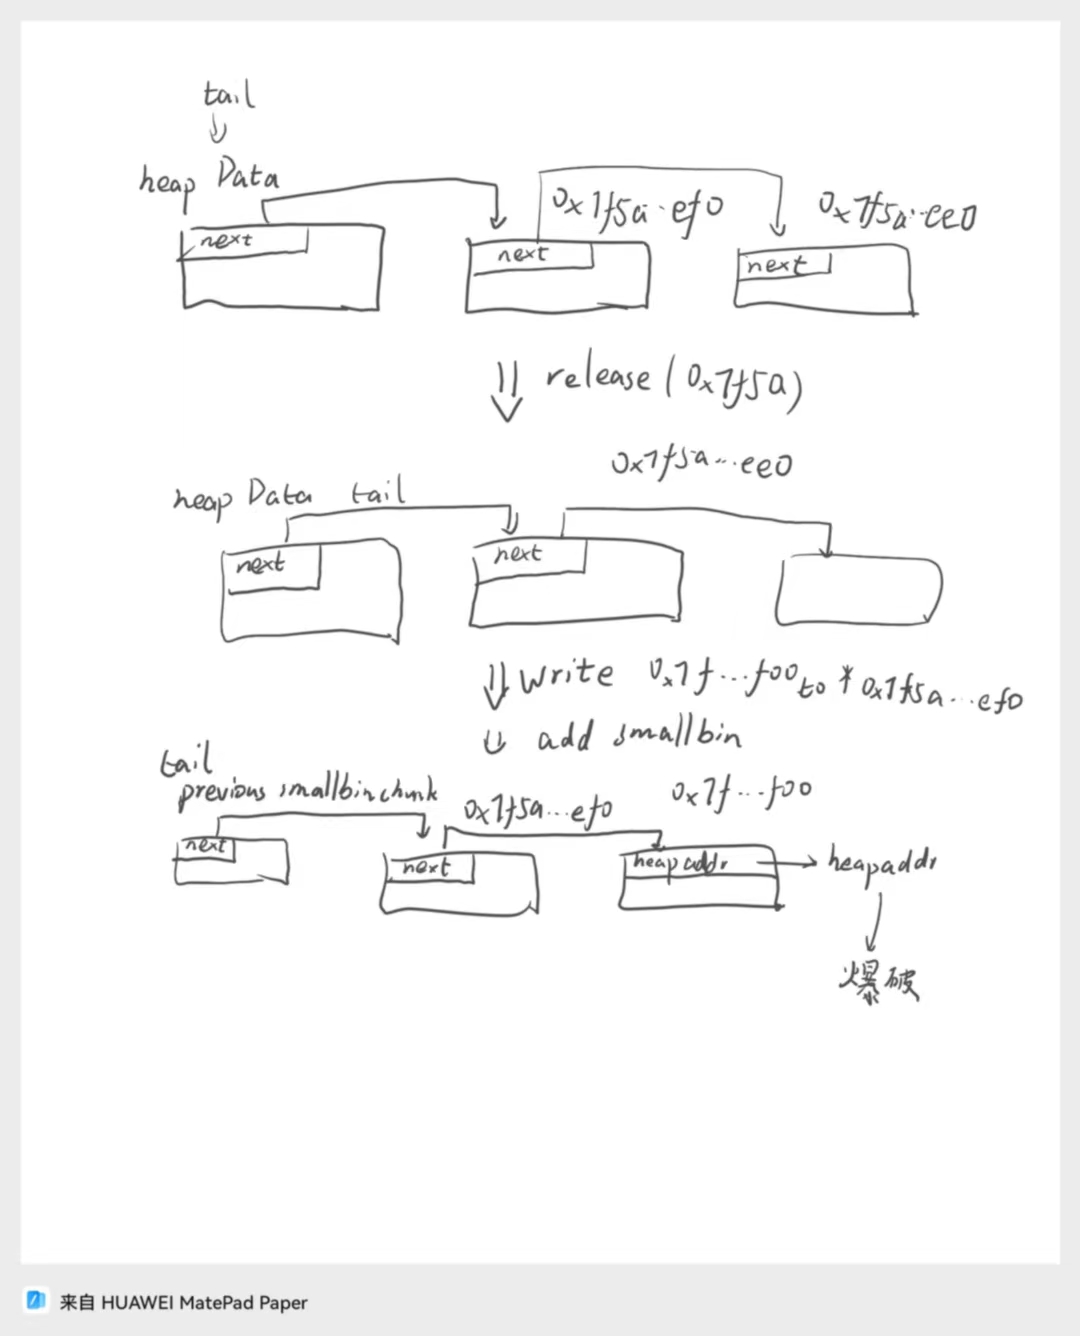 tail
heap Data
0x7f5a..ef0
0x7f5a..ee0
next
next
next
release(0x7f5a)
0x7f5a...ee0
heap Data tail
next
next
write 0x7f...f00 to *0x7f5a...ef0
add smallbin
tail
previous smallbinchunk
0x7f5a...ef0
0x7f...f00
next
next
heapaddr
heapaddr
爆破
来自 HUAWEI MatePad Paper